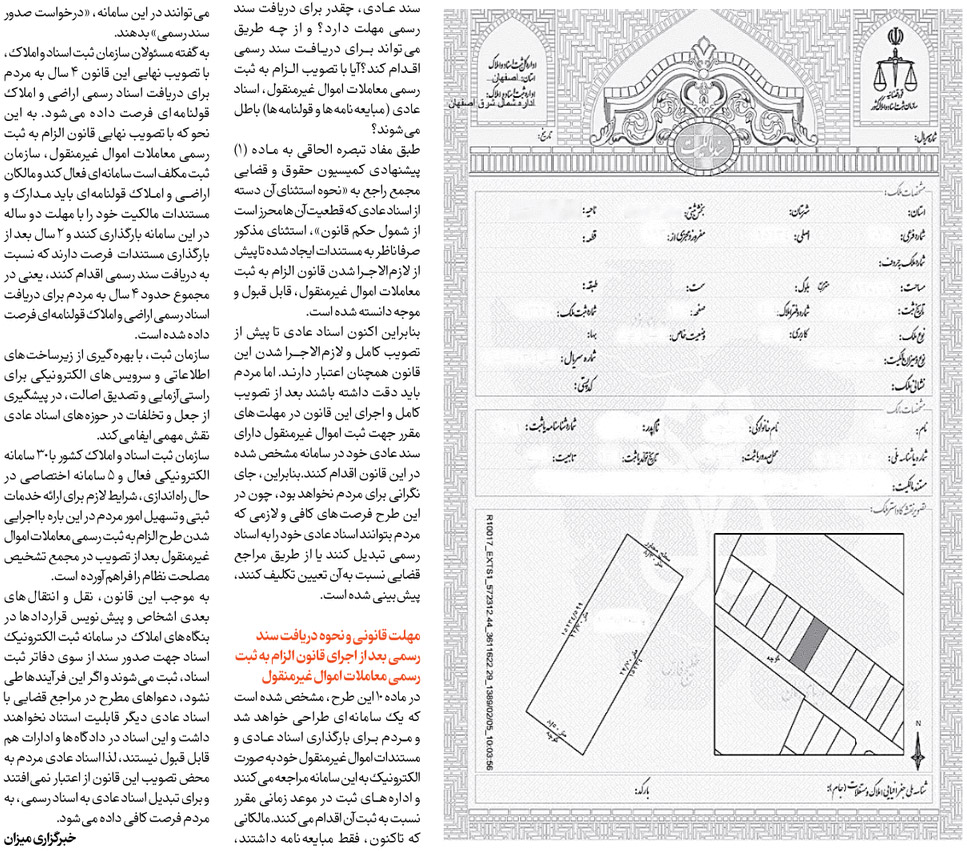 سند عادی، چقدر برای دریافت سند
رسمی مهلت دارد؟ و از چه طریق
می‌تواند برای دریافت سند رسمی
اقدام کند؟آیا با تصویب الزام به ثبت
رسمی معاملات اموال غیرمنقول، اسناد
عادی (مبایعه نامه‌ها و قولنامه‌ها) باطل
می‌شوند؟
طبق مفاد تبصره الحاقی به ماده (۱)
پیشنهادی کمیسیون حقوق و قضایی
مجمع راجع به «نحوه استثنای آن دسته
از اسناد عادی که قطعیت آن‌ها محرز است
از شمول حکم قانون»، استثنای مذکور
صرفا ناظر به مستندات ایجاد شده تا پیش
از لازم‌الاجرا شدن قانون الزام به ثبت
معاملات اموال غیرمنقول، قابل قبول و
موجه دانسته شده است.
بنابراین اکنون اسناد عادی تا پیش از
تصویب کامل و لازم‌الاجرا شدن این
قانون همچنان اعتبار دارند. اما مردم
باید دقت داشته باشند بعد از تصویب
کامل و اجرای این قانون در مهلت‌های
مقرر جهت ثبت اموال غیرمنقول دارای
سند عادی خود در سامانه مشخص شده
در این قانون اقدام کنند.بنابراین، جای
نگرانی برای مردم نخواهد بود، چون در
این طرح فرصت های کافی و لازمی که
مردم بتوانند اسناد عادی خود را به اسناد
رسمی تبدیل کنند یا از طریق مراجع
قضایی نسبت به آن تعیین تکلیف کنند،
پیش بینی شده است.
مهلت قانونی و نحوه دریافت سند
رسمی بعد از اجرای قانون الزام به ثبت
رسمی معاملات اموال غیرمنقول
در ماده ۱۰ این طرح، مشخص شده است
که یک سامانه‌ای طراحی خواهد شد
و مردم برای بارگذاری اسناد عادی و
مستندات اموال غیرمنقول خود به صورت
الکترونیک به این سامانه مراجعه می کنند
و اداره هـای ثبت در موعد زمانی مقرر
نسبت به ثبت آن اقدام می کنند. مالکانی
که تاکنون، فقط مبایعه نامه داشتند،
می توانند در این سامانه، «درخواست صدور
سند رسمی» بدهند.
به گفته مسئولان سازمان ثبت اسناد و املاک،
با تصویب نهایی این قانون ۴ سال به مردم
برای دریافت اسناد رسمی اراضی و املاک
قولنامه ای فرصت داده می شود. به این
نحو که با تصویب نهایی قانون الزام به ثبت
رسمی معاملات اموال غیرمنقول، سازمان
ثبت مکلف است سامانه‌ای فعال کند و مالکان
اراضی و املاک قولنامه ای باید مدارک و
مستندات مالکیت خود را با مهلت دو ساله
در این سامانه بارگذاری کنند و ۲ سال بعد از
بارگذاری مستندات فرصت دارند که نسبت
به دریافت سند رسمی اقدام کنند، یعنی در
مجموع حدود ۴ سال به مردم برای دریافت
اسناد رسمی اراضی و املاک قولنامه ای فرصت
داده شده است.
سازمان ثبت، با بهره گیری از زیرساخت‌های
اطلاعاتی و سرویس های الکترونیکی برای
راستی آزمایی و تصدیق اصالت، در پیشگیری
از جعل و تخلفات در حوزه‌های اسناد عادی
نقش مهمی ایفا می کند.
سازمان ثبت اسناد و املاک کشور با ۳۰ سامانه
الکترونیکی فعال و ۵ سامانه اختصاصی در
حال راه اندازی، شرایط لازم برای ارائه خدمات
ثبتی و تسهیل امور مردم در این باره با اجرایی
شدن طرح الزام به ثبت رسمی معاملات اموال
غیرمنقول بعد از تصویب در مجمع تشخیص
مصلحت نظام را فراهم آورده است.
به موجب این قانون، نقل و انتقال های
بعدی اشخاص و پیش نویس قراردادها در
بنگاه‌های املاک در سامانه ثبت الکترونیک
اسناد جهت صدور سند از سوی دفاتر ثبت
اسناد، ثبت می شوند و اگر این فرآیندها طی
نشود، دعواهای مطرح در مراجع قضایی با
اسناد عادی دیگر قابلیت استناد نخواهند
داشت و این اسناد در دادگاه‌ها و ادارات هم
قابل قبول نیستند، لذا اسناد عادی مردم به
محض تصویب این قانون از اعتبار نمی افتند
و برای تبدیل اسناد عادی به اسناد رسمی، به
مردم فرصت کافی داده می شود.
خبرگزاری میزان
قوه قضائیه
سازمان ثبت اسناد و املاک کشور
شماره سریال:
اداره کل ثبت اسناد و املاک
استان: اصفهان
اداره ثبت اسناد و املاک:
اداره شمال شرق اصفهان
تاریخ:
سند مالکیت
مشخصات ملک:
استان: شهرستان: بخش ثبتی: ناحیه:
شماره فرعی: اصلی: مفروز و مجزی از: قطعه:
شماره ملک به حروف:
مساحت: متر مربع بلوک: سمت: طبقه:
تاریخ ثبت: شماره دفتر املاک: صفحه: شماره ثبت ملک:
نوع ملک: کاربری: وضعیت خاص: بهاء:
نوع و میزان مالکیت: شماره سریال:
نشانی ملک: کد پستی:
مشخصات مالک:
نام: نام خانوادگی: نام پدر: شماره شناسنامه یا ثبت:
شماره یا شناسه ملی: محل صدور یا ثبت: تاریخ تولد یا ثبت: تابعیت:
مستند مالکیت:
R10017_EXTS1_572312.44_3611622.29_1389/02/05_10:03:56
کوچه
N
شناسه ملی جغرافیایی املاک و مستغلات (جام): بارکد: